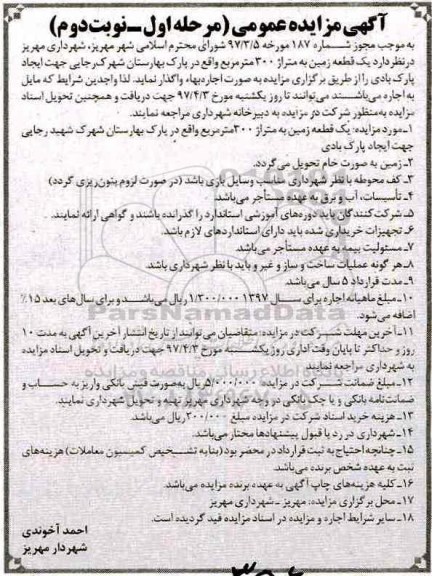 آگهی مزایده عمومی (مرحله اول ـ نوبت دوم)
به موجب مجوز شماره ۱۸۷ مورخه ۹۷/۳/۵ شورای محترم اسلامی شهر مهریز، شهرداری مهریز
در نظر دارد یک قطعه زمین به متراژ ۳۰۰ مترمربع واقع در پارک بهارستان شهرک رجایی جهت ایجاد
پارک بادی را از طریق برگزاری مزایده به صورت اجاره‌بهاء واگذار نماید. لذا واجدین شرایط که مایل
به اجاره می‌باشند می‌توانند تا روز یکشنبه مورخ ۹۷/۴/۳ جهت دریافت و همچنین تحویل اسناد
مزایده به‌منظور شرکت در مزایده به دبیرخانه شهرداری مراجعه نمایند.
۱ـ مورد مزایده: یک قطعه زمین به متراژ ۳۰۰ مترمربع واقع در پارک بهارستان شهرک شهید رجایی
جهت ایجاد پارک بادی
۲ـ زمین به صورت خام تحویل می‌گردد.
۳ـ کف محوطه با نظر شهرداری مناسب وسایل بازی باشد (در صورت لزوم بتون‌ریزی گردد)
۴ـ تأسیسات، آب و برق به عهده مستأجر می‌باشد.
۵ـ شرکت‌کنندگان باید دوره‌های آموزشی استاندارد را گذرانده باشند و گواهی ارائه نمایند.
۶ـ تجهیزات خریداری شده باید دارای استانداردهای لازم باشد.
۷ـ مسئولیت بیمه به عهده مستأجر می‌باشد.
۸ـ هر گونه عملیات ساخت و ساز و غیر و باید با نظر شهرداری باشد.
۹ـ مدت قرارداد ۵ سال می‌باشد.
۱۰ـ مبلغ ماهیانه اجاره برای سال ۱۳۹۷ ۱/۳۰۰/۰۰۰ ریال می‌باشد و برای سال‌های بعد ۱۵٪
اضافه می‌شود.
۱۱ـ آخرین مهلت شرکت در مزایده: متقاضیان می‌توانند از تاریخ انتشار آخرین آگهی به مدت ۱۰
روز و حداکثر تا پایان وقت اداری روز یکشنبه مورخ ۹۷/۴/۳ جهت دریافت و تحویل اسناد مزایده
به شهرداری مراجعه نمایند
۱۲ـ مبلغ ضمانت شرکت در مزایده ۵/۰۰۰/۰۰۰ ریال به‌صورت فیش بانکی واریز به حساب و
ضمانت‌نامه بانکی و یا چک بانکی در وجه شهرداری مهریز تهیه و تحویل شهرداری نمایند.
۱۳ـ هزینه خرید اسناد شرکت در مزایده مبلغ ۳۰۰/۰۰۰ ریال می‌باشد.
۱۴ـ شهرداری در رد یا قبول پیشنهادها مختار می‌باشد.
۱۵ـ چنانچه احتیاج به ثبت قرارداد در محضر بود (بنابه تشخیص کمیسیون معاملات) هزینه‌های
ثبت به عهده شخص برنده می‌باشد.
۱۶ـ کلیه هزینه‌های چاپ آگهی به عهده برنده مزایده می‌باشد.
۱۷ـ محل برگزاری مزایده: مهریز ـ شهرداری مهریز
۱۸ـ سایر شرایط اجاره و مزایده در اسناد مزایده قید گردیده است.
احمد آخوندی
شهردار مهریز
ParsNamadData